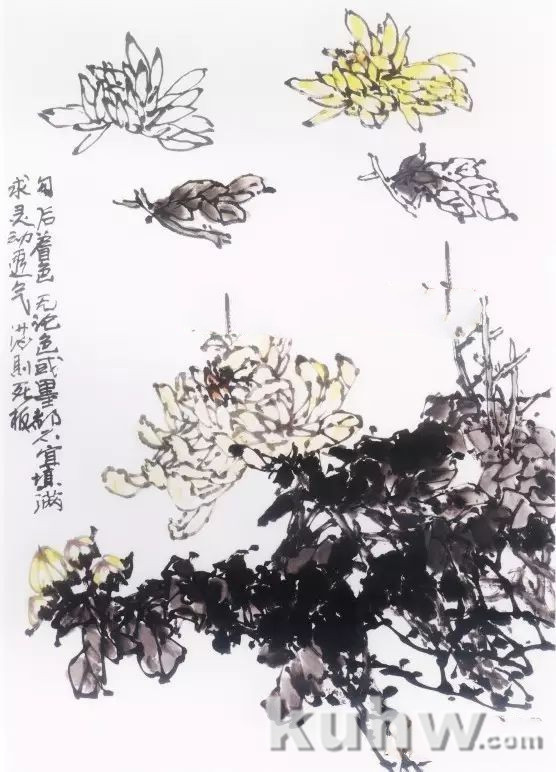 勾后着色 无论色或墨都不宜填满
求灵动透气 满则死板
kuhw.com